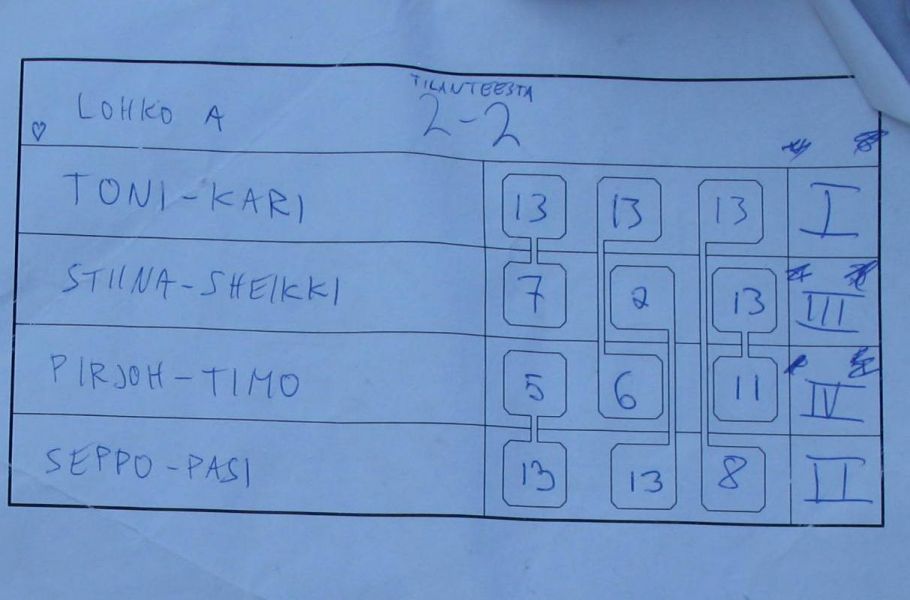 TILANTEESTA
LOHKO A 2-2
TONI-KARI 13 13 13 I
STIINA-SHEIKKI 7 2 13 III
PIRJOH-TIMO 5 6 11 IV
SEPPO-PASI 13 13 8 II